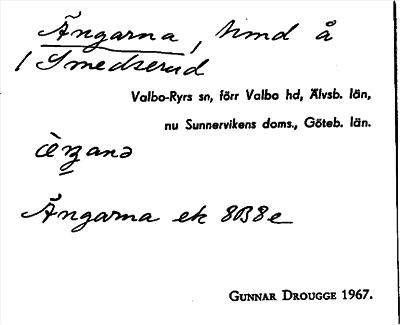 Ängarna, hmd å
1 Smedserud
Valbo-Ryrs sn, förr Valbo hd, Älvsb. län,
nu Sunnervikens doms., Göteb. län.
Ängarna ek 8B8e
GUNNAR DROUGGE 1967.